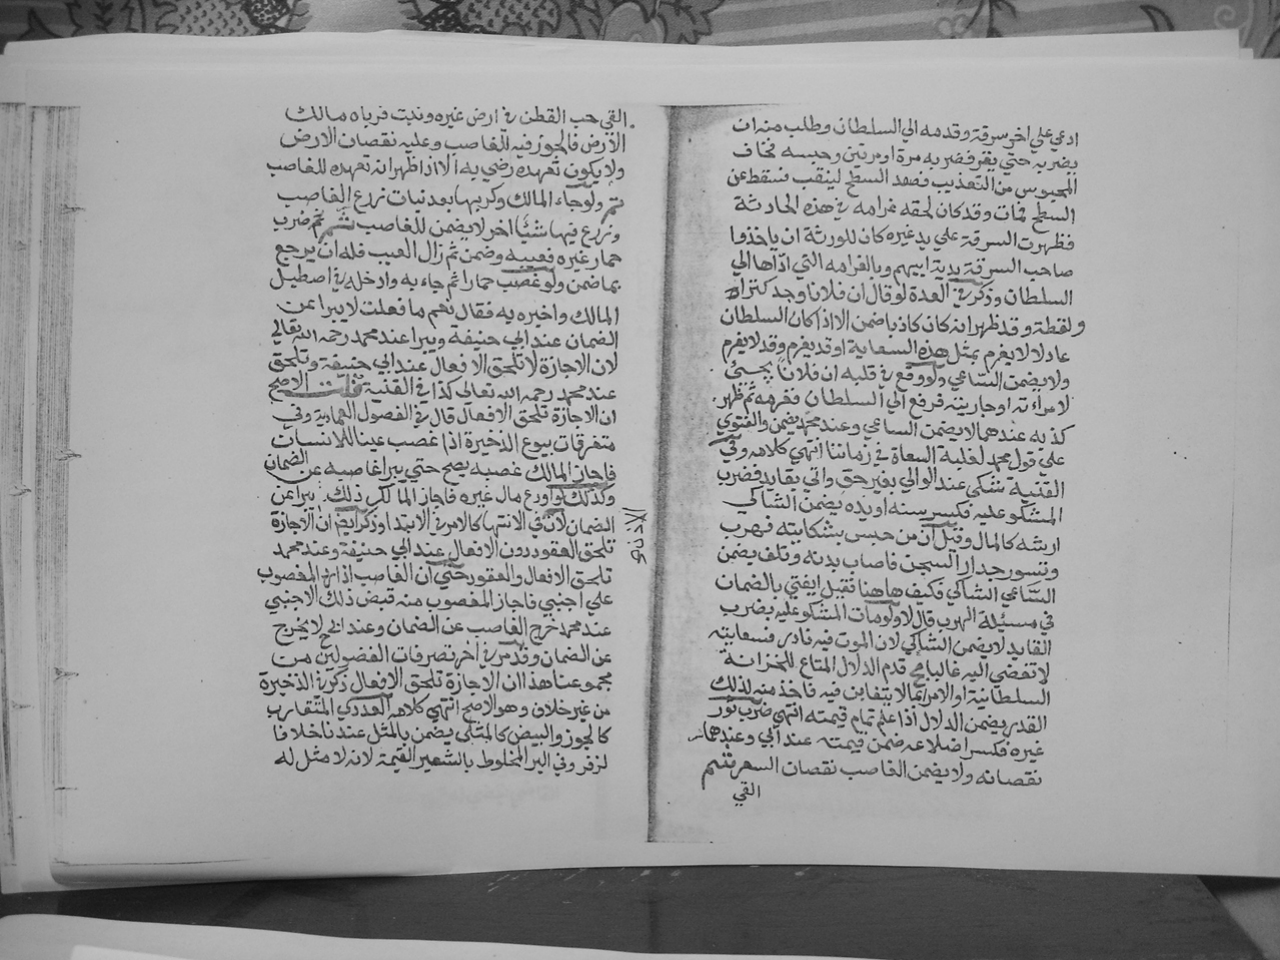 ادعي علي اخر سرقة وقدمه الي السلطان وطلب منه ان
يضربه حتي يقر فضربه مرة او مرتين وحبسه فخاف
المحبوس من التعذيب فصعد السطح لينقب فسقط عن
السطح فمات وقد كان لحقه غرامه في هذه الحادثة
فظهرت السرقة علي يد غيره كان للورثة ان ياخذوا
صاحب السرقة بدية ابيهم وبالغرامه التي اداها الي
السلطان وذكر في العدة لو قال ان فلانا وجد كنزا
ولقطة وقد ظهر انه كان كاذبا ضمن الا اذا كان السلطان
عادلا لا يغرم بمثل هذه السعاية او قد يغرم وقد لا يغرم
ولا يضمن الساعي ولو وقع في قلبه ان فلانا يجئ
لامراءته او جاريته فرفع الي السلطان فغرمه ثم ظهر
كذبه عندهما لا يضمن الساعي وعند محمد يضمن والفتوي
علي قول محمد لغلبة السعاة في زماننا انتهي كلامه وفي
القنية شكي عند الوالي بغير حق واتي بقايد فضرب
المشكو عليه فكسر سنه او يده يضمن الشاكي
ارشه كالمال وقيل ان من حبس بشكايته فهرب
وتسور جدار السجن فاصاب بدنه وتلف يضمن
الساعي الشاكي فكيف هاهنا فقيل ايفتي بالضمان
في مسئلة الهرب قال لا ولو مات المشكو عليه بضرب
القايد لا يضمن الشاكي لان الموت فيه نادر فسعايته
لا تفضي اليه غالبا قدم الدلال المتاع للخزانة
السلطانية او الامر بما لا يتغابن فيه فاخذ منه لذلك
القدر يضمن الدلال اذا علم تمام قيمته انتهي ضرب ثور
غيره فكسر اضلاعه ضمن قيمته عند ابي وعندهما
نقصانه ولا يضمن الغاصب نقصان السعر
القي
القي حب القطن في ارض غيره ونبت فرباه مالك
الارض فالجوز فيه للغاصب وعليه نقصان الارض
ولا يكون تعهده رضي به الا اذا ظهر انه تعهده للغاصب
ولو جاء المالك وكربها بعد نبات زرع الغاصب
وزرع فيها شيئا اخر لا يضمن للغاصب ضرب
حمار غيره فعيبه وضمن ثم زال العيب فله ان يرجع
بما ضمن ولو غصب حمارا ثم جاء به وادخله في اصطبل
المالك واخبره به فقال نعم ما فعلت لا يبرا عن
الضمان عند ابي حنيفة ويبرا عند محمد رحمه الله تعالي
لان الاجازة لا تلحق الافعال عند ابي حنيفة وتلحق
عند محمد رحمه الله تعالي كذا في القنية قلت الاصح
ان الاجازة تلحق الافعال قال في الفصول العمادية وفي
متفرقات بيوع الذخيرة اذا غصب عينا للانسان
فاجاز المالك غصبه يصح حتي يبرا غاصبه عن الضمان
وكذلك لو اودع مال غيره فاجاز المالك ذلك يبرا عن
الضمان لان في الانتها كالامر في الابتدا وذكر ايضا ان الاجازة
تلحق العقود دون الافعال عند ابي حنيفة وعند محمد
تلحق الافعال والعقود حتي ان الغاصب اذا رد المغصوب
علي اجنبي فاجاز المغصوب منه قبض ذلك الاجنبي
عند محمد خرج الغاصب عن الضمان وعند لا يخرج
عن الضمان وقد مر في اخر تصرفات الفضولين من
مجموعنا هذا ان الاجازة تلحق الافعال ذكر في الذخيرة
من غير خلاف وهو الاصح انتهي كلامه العددي المتقارب
كالجوز والبيض كالمثلي يضمن بالمثل عندنا خلافا
لزفر وفي البر المخلوط بالشعير القيمة لانه لا مثل له